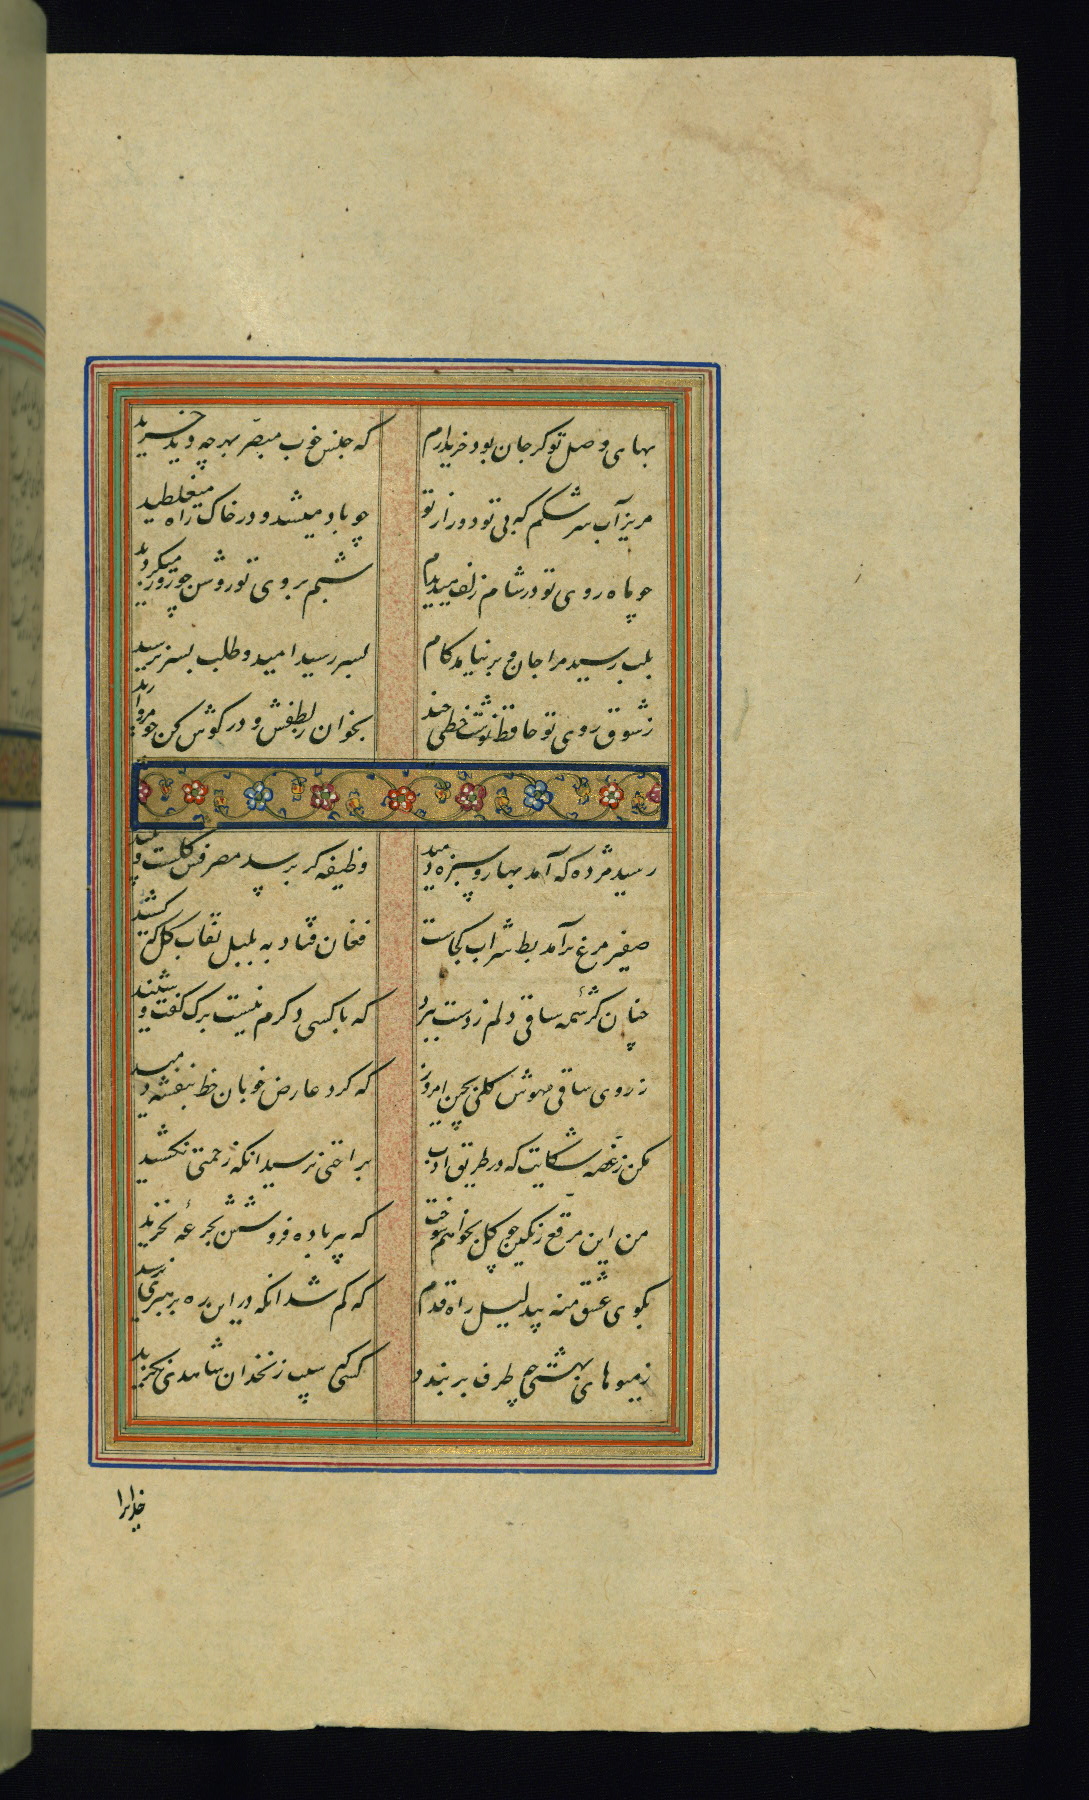 بهای وصل تو کر جان بود خریدارم که جنس خوب مبصر بهر چه دید خرید
مریز آب سرشکم که بی تو دور از تو چو باد میشد و در خاک راه میغلطید
چو ماه روی تو در شام زلف میدیدم شبم بروی تو روشن چو روز میکردید
بلب رسید مرا جان و برنیامد کام بسر رسید امید و طلب بسر نرسید
زشوق روی تو حافظ نوشت خطی چند بخوان زلطفش و در کوش کن چو مروارید
رسید مژده که آمد بهار و سبزه دمید وظیفه کر برسد مصرفش کلست و نبید
صفیر مرغ برآمد بط شراب کجاست فغان فتاد به بلبل نقاب کل که کشید
چنان کرشمه ساقی دلم زدست ببرد که با کسی دکرم نیست برک کفت و شنید
ز روی ساقی مهوش کلی بچین امروز که کرد عارض خوبان خط بنفشه دمید
مکن زغصه شکایت که در طریق ادب براحتی نرسید انکه زحمتی نکشید
من این مرقع رنکین چو کل بخواهم سوخت که پیر باده فروشش بجرعهٔ نخرید
بکوی عشق منه بیدلیل راه قدم که کم شد انکه در این ره برهبری نرسید
زمیوهای بهشتی چه طرف بربندد کسی که سیب زنخدان شاهدی نکزید
خدایرا